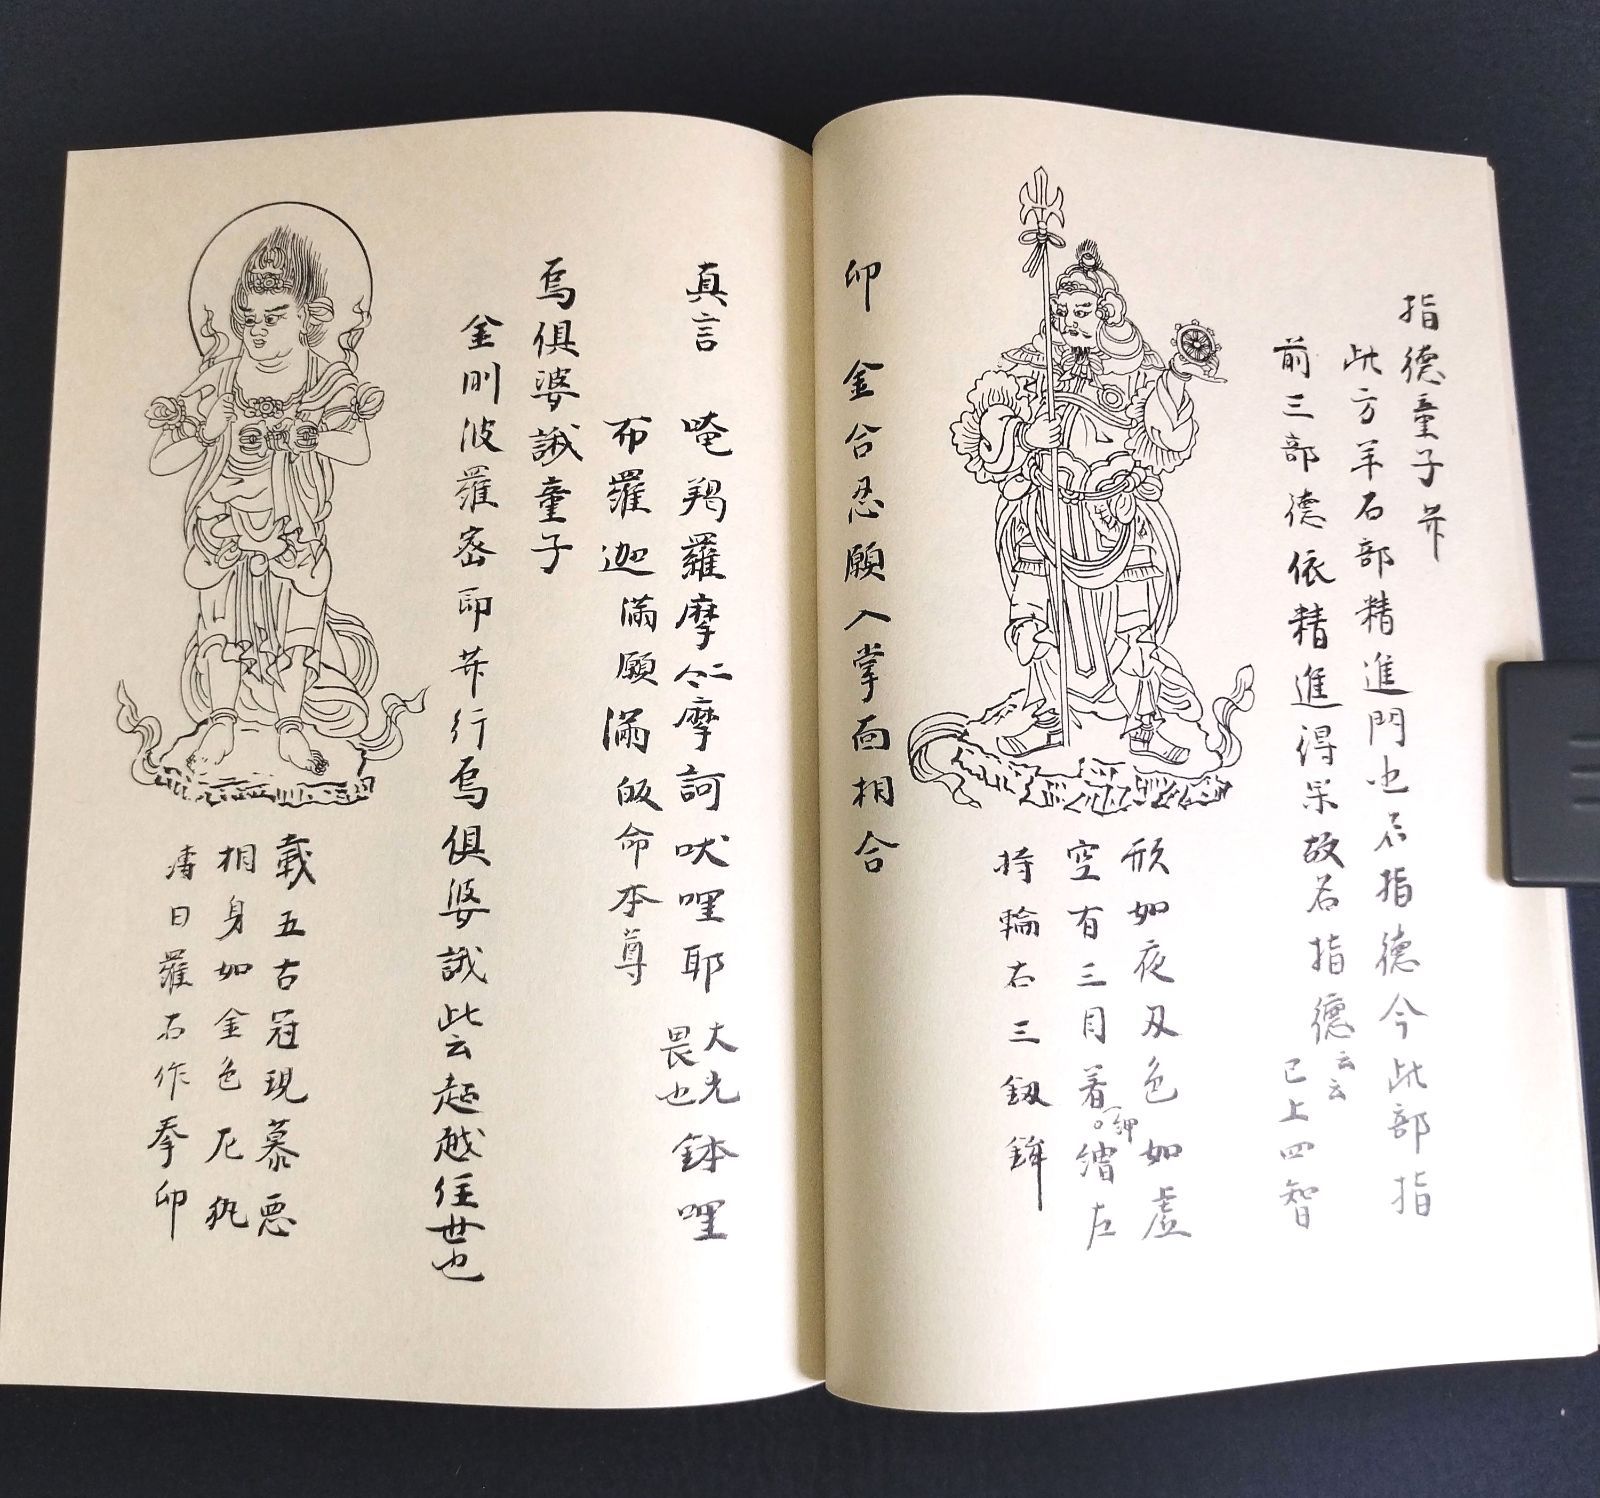 指德童子𦬇
此方羊石部精進門也名指德今此部指
前三部德依精進得果故名指德云云
已上四智
形如夜叉色如虛
空有三目着甲繒左
持輪右三釼鉾
印 金合忍願入掌面相合
真言 唵羯羅摩仁摩訶吠哩耶大光畏也鉢哩
布羅迦滿願滿皈命本尊
烏俱婆誐童子
金剛波羅密即𦬇行烏俱婆誐此云超越住世也
載五古冠現慕惡
相身如金色左執
嚩日羅右作拳印